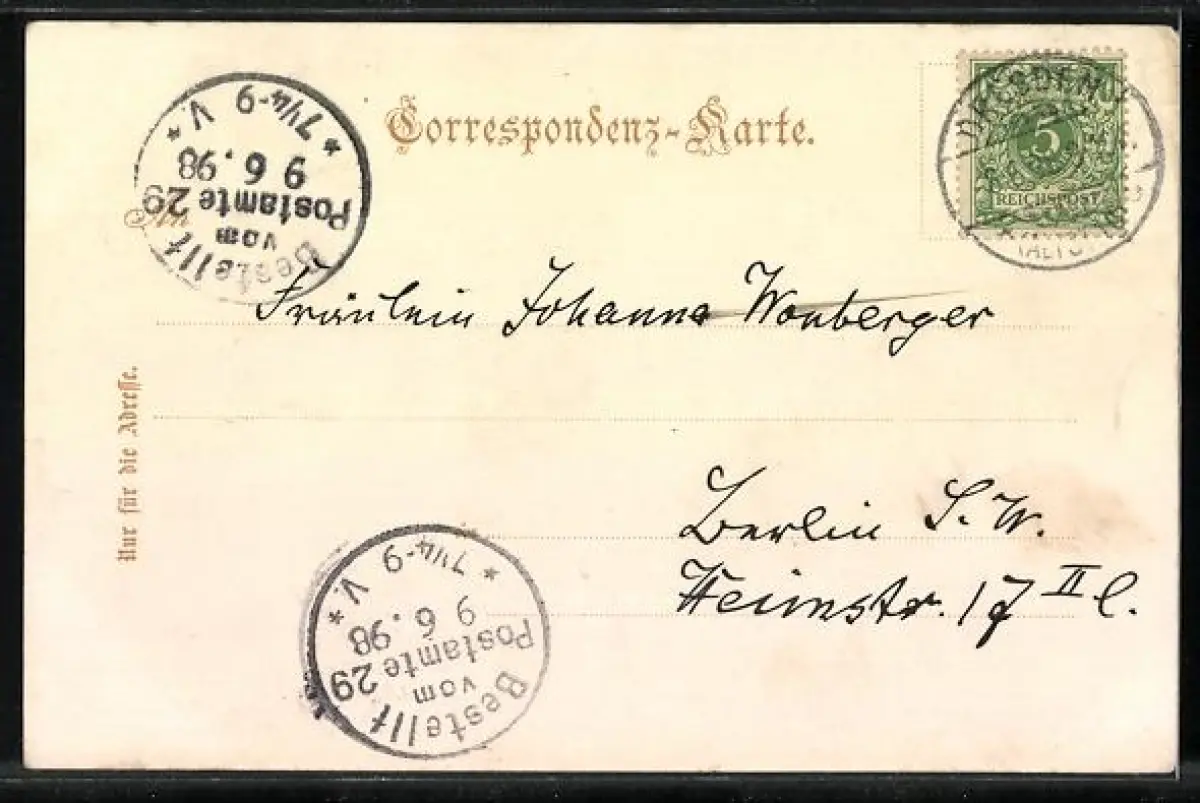 Correspondenz-Karte.
DRESDEN
5
REICHSPOST
Bestellt
vom
Postamte 29
9 6. 98
* 7¼-9 V. *
An
Fräulein Johanna Wonberger
Berlin S.W.
Heimstr. 17 II l.
Nur für die Adresse.
Bestellt
vom
Postamte 29
9 6. 98
* 7¼-9 V. *